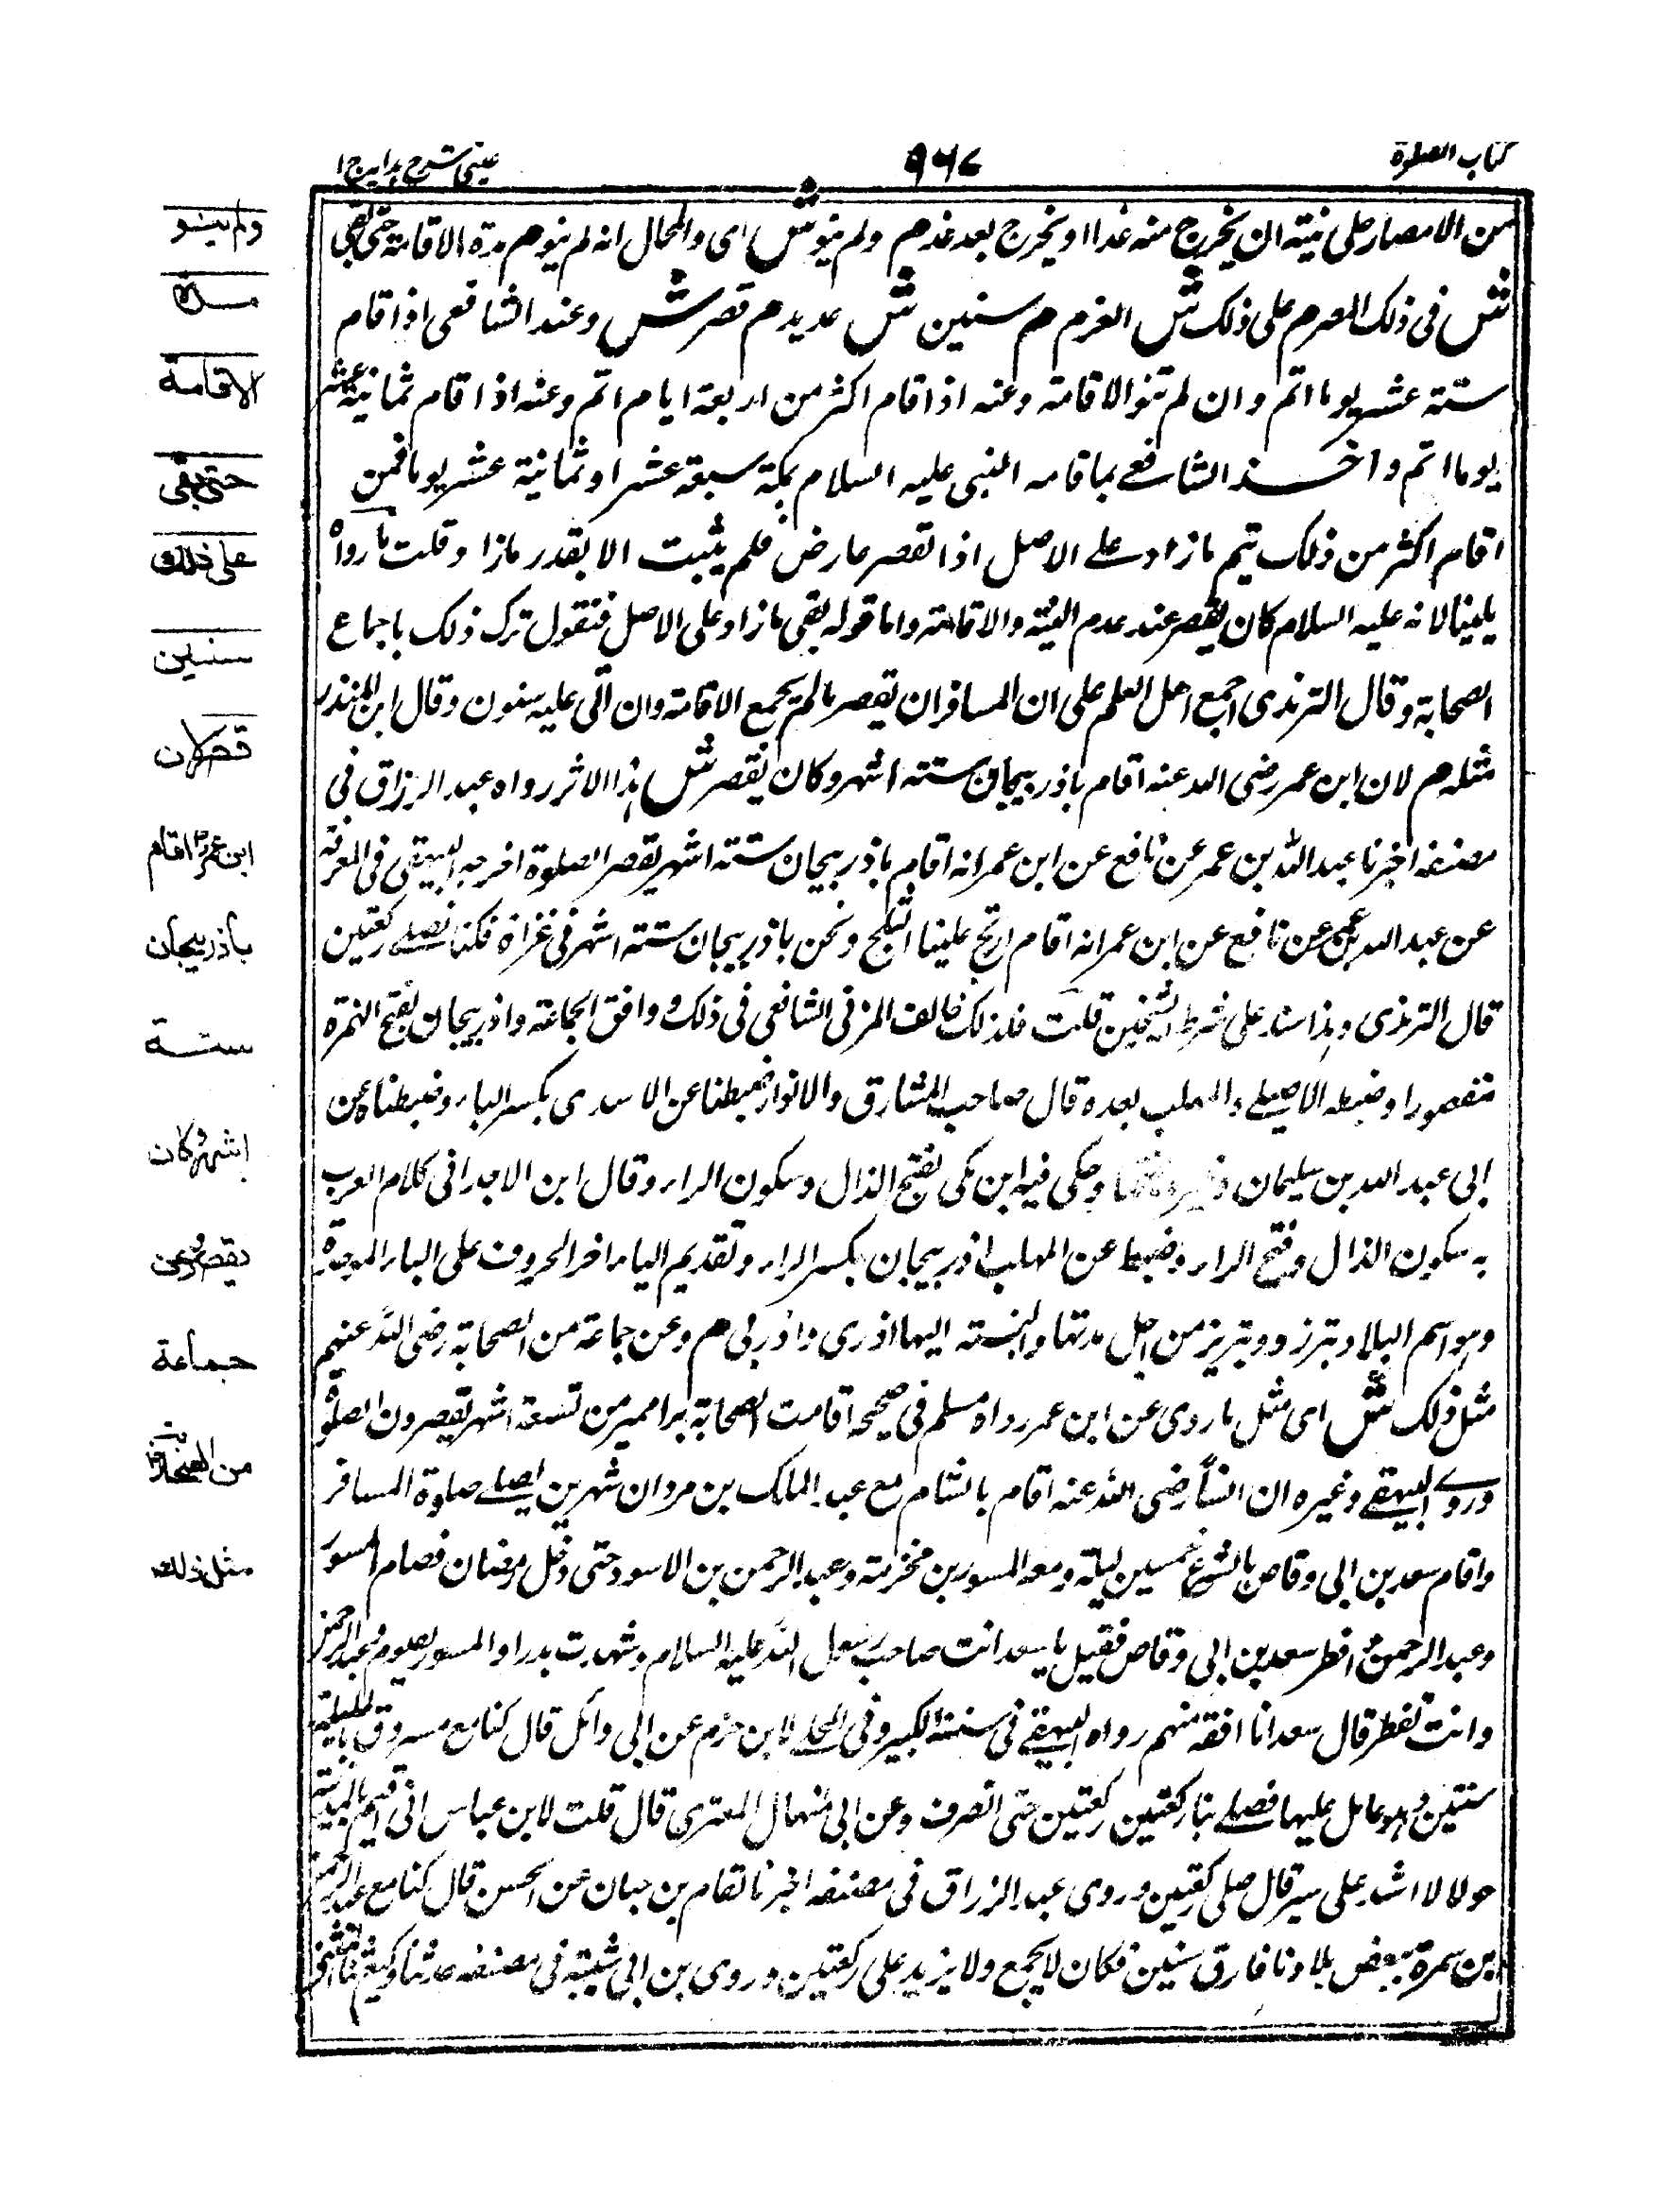 كتاب الصلوة
٩٦٧
عينى شرح هدايه ج ١
من الامصار على نية ان يخرج منه غدا او يخرج بعد غد م ولم ينو ش اى والحال انه لم ينو م مدة الاقامة حتى بقى
ش فى ذلك المصر م على ذلك ش العزم م سنين ش عديد م قصر ش وعند الشافعى اذا اقام
ستة عشر يوما اتم وان لم ينو الاقامة وعنه اذا اقام اكثر من اربعة ايام اتم وعنه اذا اقام ثمانية عشر
يوما اتم واخذ الشافعے بما قامه النبى عليه السلام بمكة سبعة عشر او ثمانية عشر يوما فمن
اقام اكثر من ذلك يتم مازاد علے الاصل اذ القصر عارض فلم يثبت الا بقدر مازا وقلت ما رواه
يلينا لانه عليه السلام كان يقصر عند عدم النية والاقامة واما قوله بقى مازاد على الاصل فنقول ترك ذلك باجماع
الصحابة وقال الترمذى اجمع اهل العلم على ان المسافر ان يقصر مالم يجمع الاقامة وان اتى عليه سنون وقال ابن المنذر
مثله م لان ابن عمر رضى الله عنه اقام باذربيجان ستة اشهر وكان يقصر ش هذا الاثر رواه عبد الرزاق فى
مصنفه اخبرنا عبد الله بن عمر عن نافع عن ابن عمر انه اقام باذربيجان ستة اشهر يقصر الصلوة اخرجه البيهقى فى المعرفة
عن عبد الله بن عمر عن نافع عن ابن عمر انه اقام ارتج علينا الثلج ونحن باذربيجان ستة اشهر فى غزاة فكنا نصلے ركعتين
قال الترمذى وهذا سند على شرط الشيخين قلت فلذلك خالف المزنى الشافعى فى ذلك ووافق الجماعة واذربيجان بفتح الهمزة
مقصورا وضبطه الاصيلے والمهلب بعده قال صاحب المشارق والانوار ضبطنا عن الاسدى بكسر الباء وضبطناه عن
ابى عبد الله بن سليمان وحكى فيه ابن مكى بفتح الذال وسكون الراء وقال ابن الاجدابى كلام العرب
به سكون الذال وفتح الراء وضبط عن المهلب اذربيجان بكسر الراء وتقديم الياء اخر الحروف على الباء الموحدة
وهو اسم البلاد تبرز ووتبريز من اجل مدتها والنسبة اليها اذرى واذربى م وعن جماعة من الصحابة رضى الله عنهم
مثل ذلك ش اى مثل ما روى عن ابن عمر رواه مسلم فى صحيحه اقامت الصحابة برامهرمز تسعة اشهر يقصرون الصلوة
وروے البيهقے وغيره ان انسا رضى الله عنه اقام بالشام مع عبد الملك بن مروان شهرين يصلے صلوة المسافر
واقام سعد بن ابى وقاص خمسين ليلة ومعه المسور بن مخرمة وعبد الرحمن بن الاسود حتى دخل رمضان فصام المسور
وعبد الرحمن وافطر سعد بن ابى وقاص فقيل يا سعد انت صاحب رسول الله عليه السلام وشهدت بدرا والمسور يصوم وعبد الرحمن
وانت تفطر قال سعد انا افقه منهم رواه البيهقے فى سننه الكبير وفى المحلے لابن حزم عن ابى وائل قال كنا مع مسروق بالسلسلة
سنتين وهو عامل عليها فصلے بنا ركعتين ركعتين حتى انصرف وعن ابى منهال العنزى قال قلت لابن عباس انى اقيم بالمدينة
حولا لا اشد على سير قال صلى ركعتين وروى عبد الرزاق فى مصنفه اخبرنا هشام بن حسان عن الحسن قال كنا مع عبد الرحمن
بن سمرة ببعض بلاد فارس سنين فكان لا يجمع ولا يزيد على ركعتين وروى بن ابى شيبة فى مصنفه حدثنا وكيع
ولم ينو
مدة
الاقامة
حتى بقى
على ذلك
سنين
قصر لان
ابن عمر اقام
باذربيجان
ستة
اشهر وكان
يقصر وعن
جماعة
من الصحابة
مثل ذلك